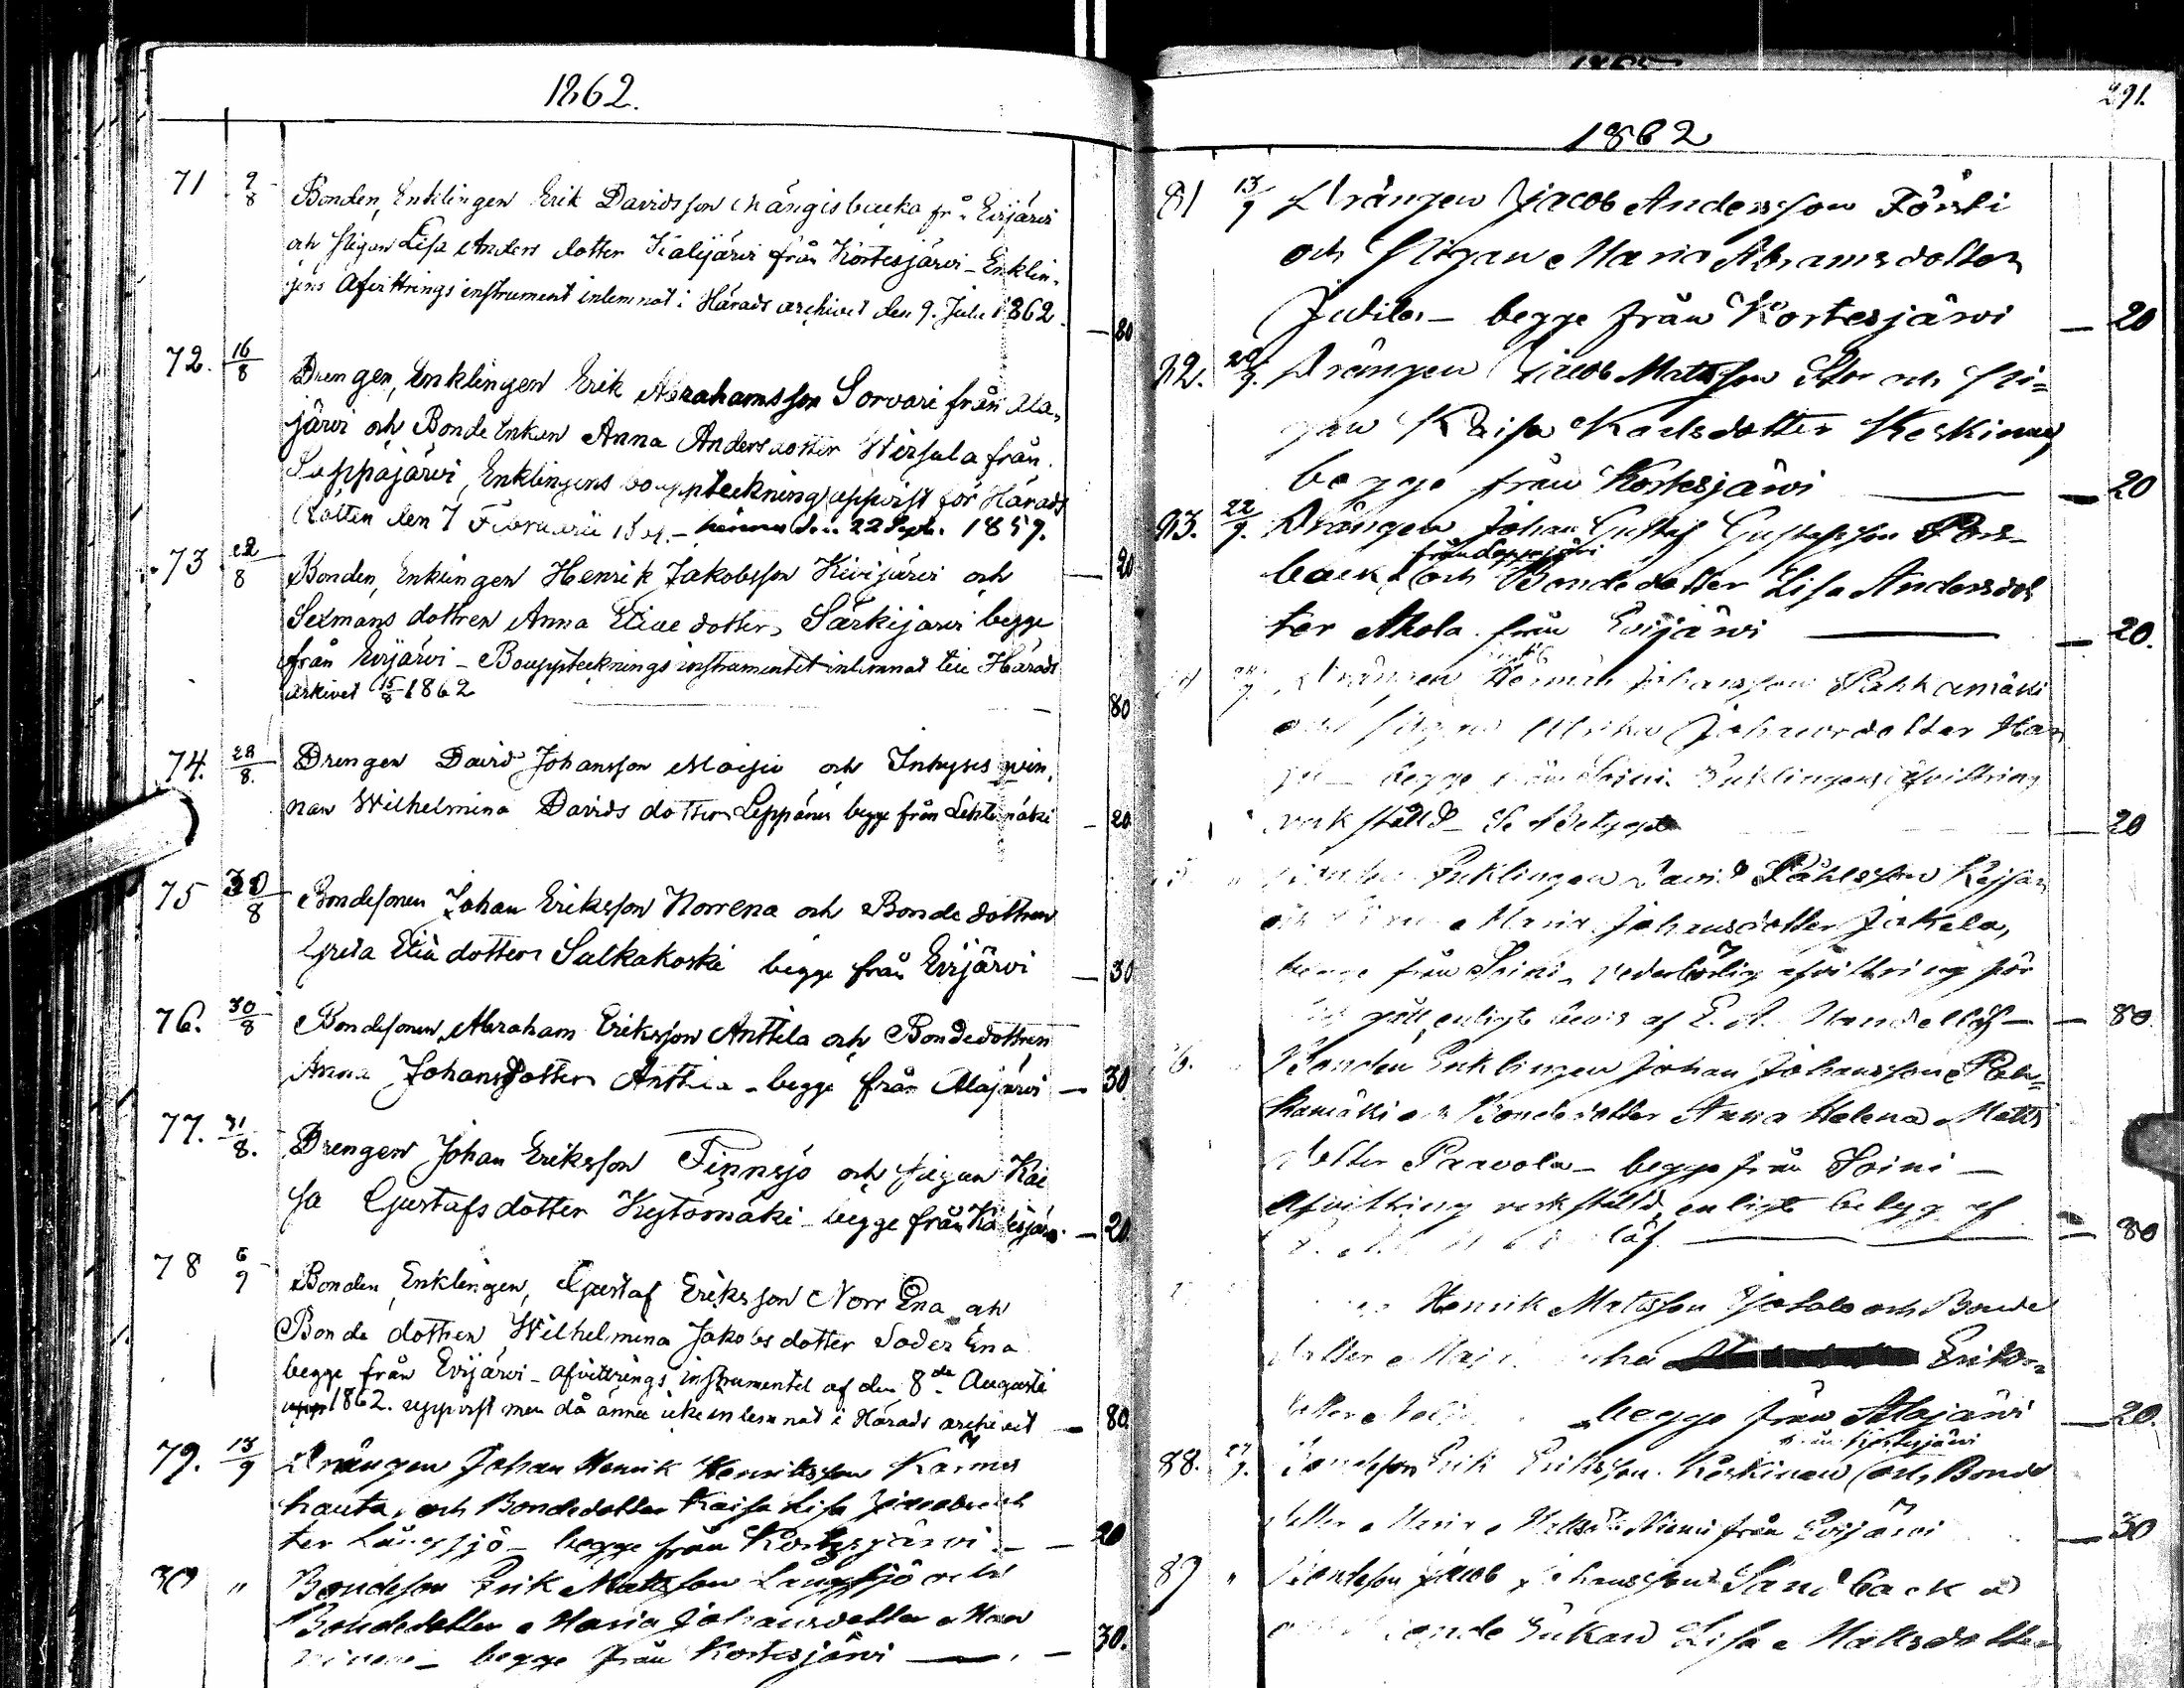 1862.
71 9/8 Bonden, Enklingen Erik Davidsson från Evijärvi
och Pigan Lisa Anders dotter Kalijärvi från Kortesjärvi - Enklin-
gens Afvittrings instrument inlemnat i Härads archivet den 9. Juli 1862. — 80
72. 16/8 Drengen, Enklingen Erik Abrahamsson Sorvari från Ala-
järvi och Bonde Enkan Anna Andersdotter Wirsula från
Lappajärvi, Enklingens bouppteckning uppvist för Härads
Rätten den 7 Februarii - hennes den 22 Sept. 1859. — 20
73 22/8 Bonden, Enklingen Henrik Jakobsson Kivijärvi och
Sexmans dottren Anna Elias dotter Särkijärvi begge
från Evijärvi - Bouppteknings instrumentet inlemnat till Härads
arkivet 15/8 1862 — 80
74. 28/8. Drengen David Johansson Maiju och Inhyses qvin-
nan Wilhelmina Davids dotter Leppänen begge från Lehtimäki — 20
75 30/8 Bondesonen Johan Eriksson Norrena och Bonde dottren
Greta Elia dotter Salkakoski begge från Evijärvi — 30
76. 30/8 Bondesonen Abraham Eriksson Anttila och Bondedottren
Anna Johansdotter Anttila - begge från Alajärvi — 30
77. 31/8. Drengen Johan Eriksson Finnsjö och Pigan Kai
sa Gustafs dotter Kytömäki - begge från Kortesjärvi — 20
78 6/9 Bonden, Enklingen, Gustaf Eriksson Norr Ena och
Bonde dottren Wilhelmina Jakobs dotter Söder Ena
begge från Evijärvi - afvittrings instrumentet af den 8de Augusti
1862. uppvist men då ännu icke inlemnat i Härads archivet — 80
79. 13/9 Drängen Johan Henrik Henriksson
hauta, och Bondedotter Kaisa Lisa Jacobsdot
ter Långsjö - begge från Kortesjärvi — 20
80 " Bondeson Erik Mattsson Långsjö och
Bondedotter Maria Johansdotter
begge från Kortesjärvi — 30.
291.
1862
81 13/9 Drängen Jacob Andersson Försti
och Pigan Maria Abramsdotter
Jutila - begge från Kortesjärvi — 20
82. 20/9. Drängen Jacob Mattsson Stor och Pi=
gan Kaisa Karlsdotter Keskinen
begge från Kortesjärvi — 20
83. 22/9. Drängen Johan Gustaf Gustafsson Fors-
från Lappajärvi
back och Bondedotter Lisa Andersdot
ter Ahola från Evijärvi — 20.
84 Drängen Herman Johansson Pahkamäki
och Pigan Ulrika Johansdotter
begge från Soini. Enklingens afvittring
verkställd — 20
" Enklingen David Påhlsson
och Maria Johansdotter Jakela,
begge från Soini, vederbörlig afvittring för
gått, enligt bevis af E. A. — 80
6. Bonden Enklingen Johan Johansson Pah=
kamäki och Bondedotter Anna Helena Matts
dotter Paavola - begge från Soini —
Afvittring verkställd enligt belyg af — 80
Henrik Mattsson och Bonde
dotter Eriks=
dotter begge från Alajärvi — 20.
från Kortesjärvi
88. 27/9. Bondeson Erik Eriksson Keskinen och Bonde
dotter Maria Niemi från Evijärvi — 30
89 " Bondeson Jacob Johansson Sandback
och Bonde Enkan Lisa Mattsdotter